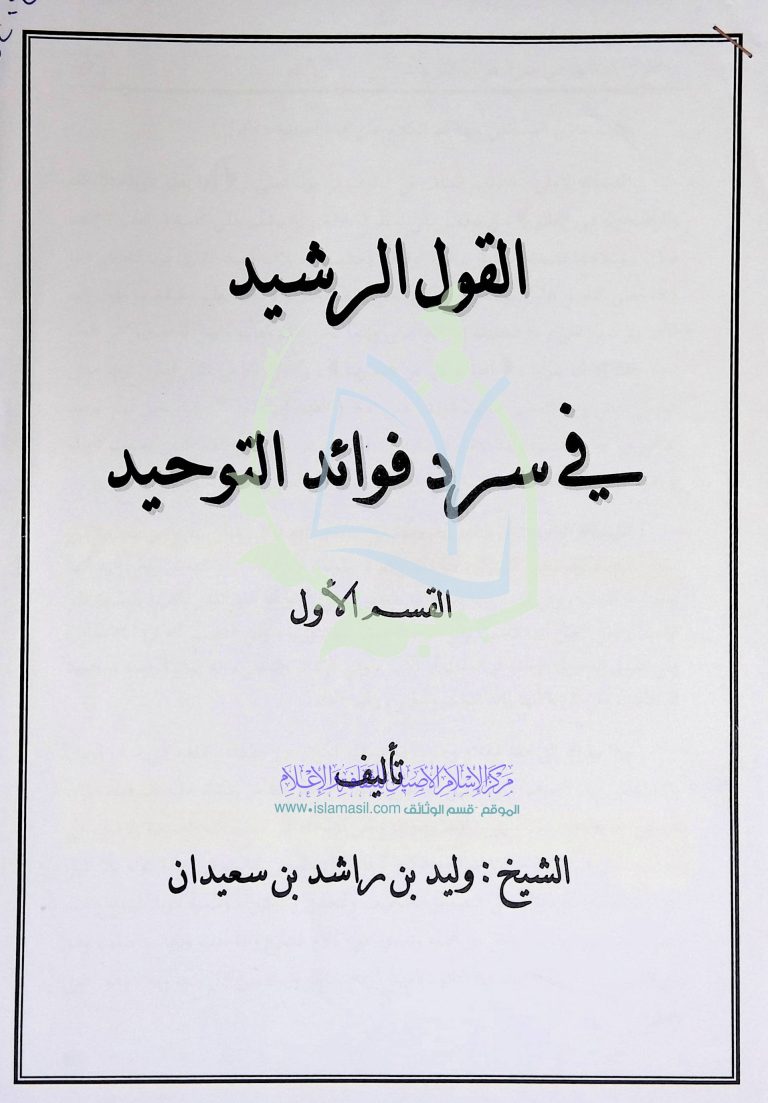 القول الرشيد
في سرد فوائد التوحيد
القسم الأول
تأليف
مركز الإسلام الأصيل للثقافة والإعلام
الموقع - قسم الوثائق www.islamasil.com
الشيخ : وليد بن راشد بن سعيدان